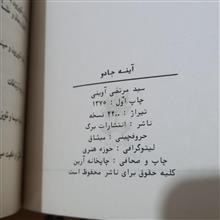 آینه جادو
سید مرتضی آوینی
چاپ اول: ۱۳۷۵
تیراژ: ۴۴۰۰ نسخه
ناشر: انتشارات برگ
حروفچینی: میثاق
لیتوگرافی: حوزه هنری
چاپ و صحافی: چاپخانه آرین
کلیه حقوق برای ناشر محفوظ است